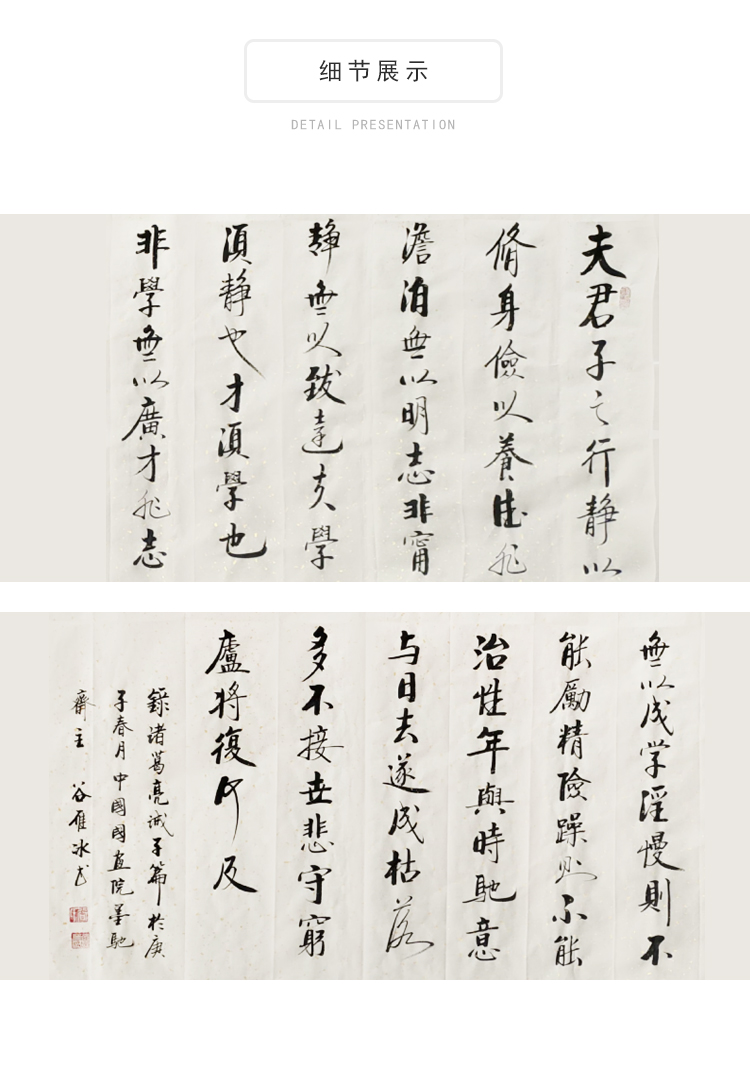 细节展示
DETAIL PRESENTATION
夫君子之行静以
脩身儉以養德非
澹泊無以明志非甯
静無以致遠夫學
須静也才須學也
非學無以廣才非志
無以成学淫慢則不
能勵精險躁則不能
治性年與時馳意
与日去遂成枯落
多不接世悲守窮
廬將復何及
錄诸葛亮诫子篇於庚
子春月中國國画院墨馳
齋主 谷雁冰书